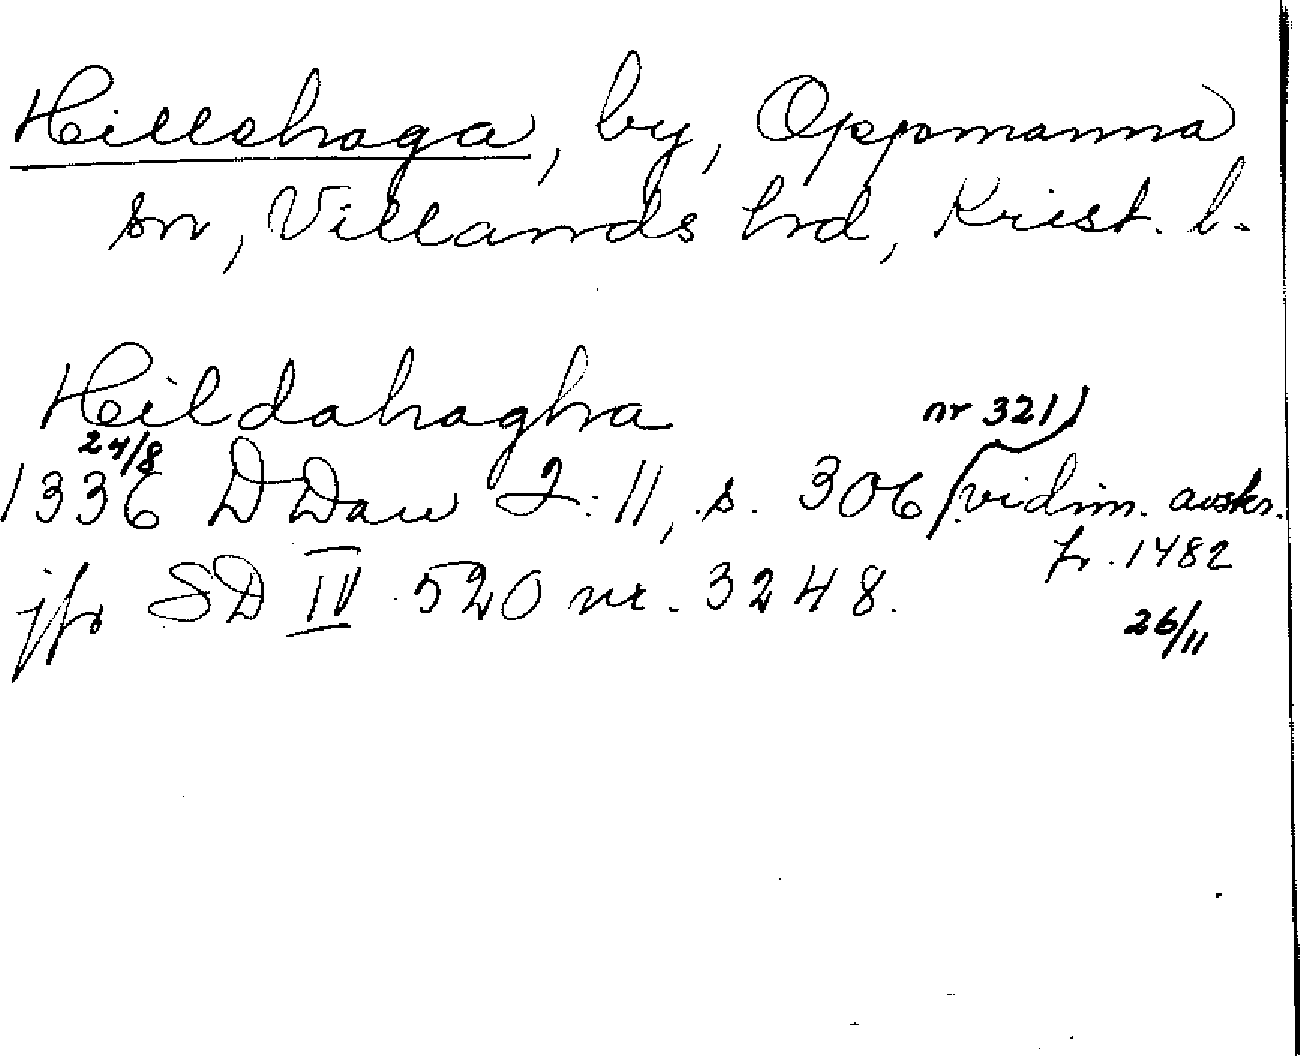 Hillshaga, by, Oppmanna
sn, Villands hrd, Krist. l.
Hildahaghra
nr 321)
24/8
1336 DDan 2:11, s. 306 (vidim. avskr.
fr. 1482
jfr SD IV 520 nr. 3248.
26/11